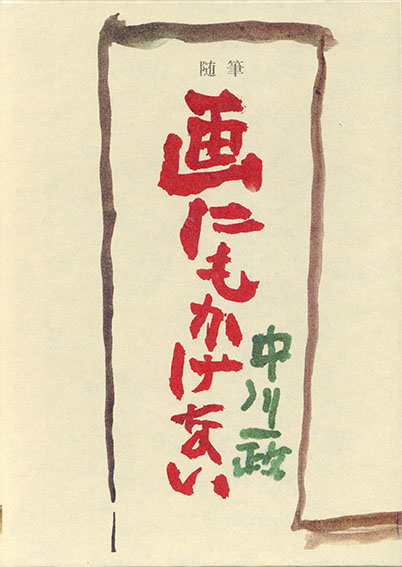 随筆
画にもかけない
中川一政